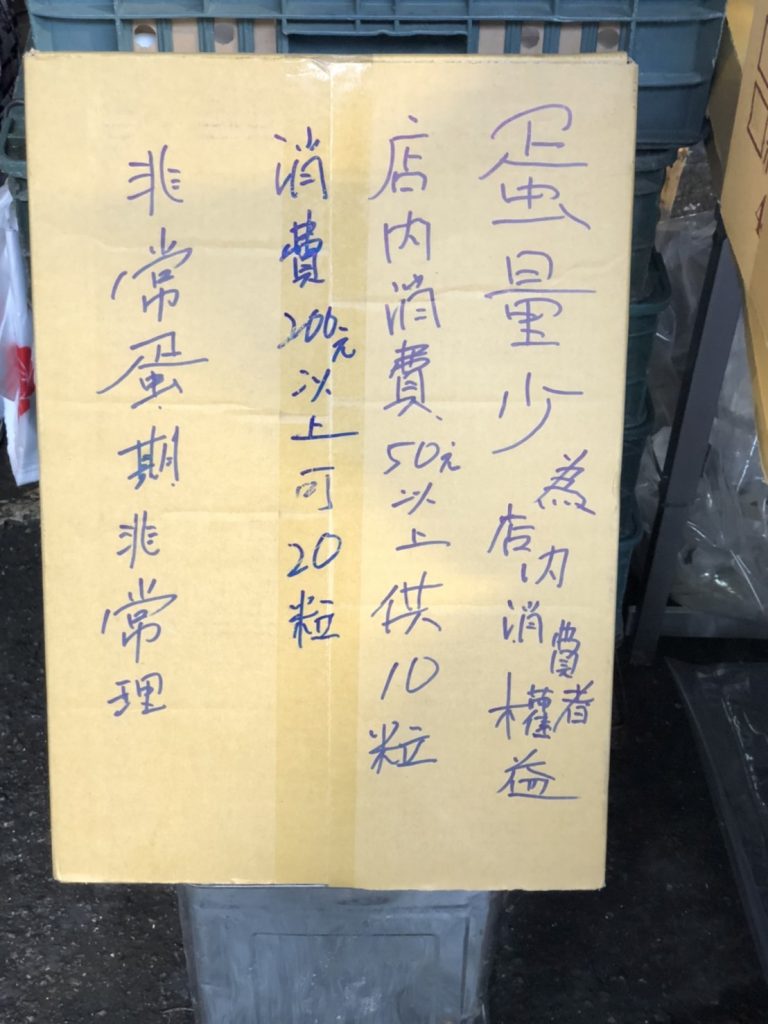 蛋量少為店內消費者權益
店內消費50元以上供10粒
消費200元以上可20粒
非常蛋期非常理
4